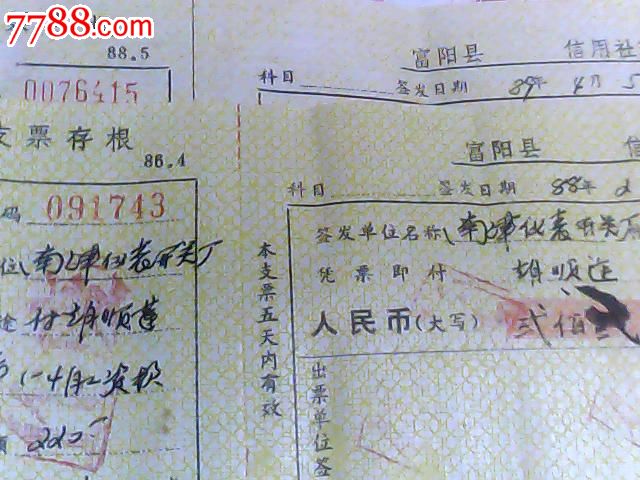 7788.com
88.5
0076415
富阳县 信用社
科目 签发日期 89年4月5
支票存根
86.4
富阳县 信
科目 签发日期 88年2
码 091743
签发单位名称 仪表开关厂
位 仪表开关厂
凭票即付 顺连
途 付 顺莲
人民币(大写) 贰佰贰
1-4月工资
220
本支票五天内有效
出票单位签